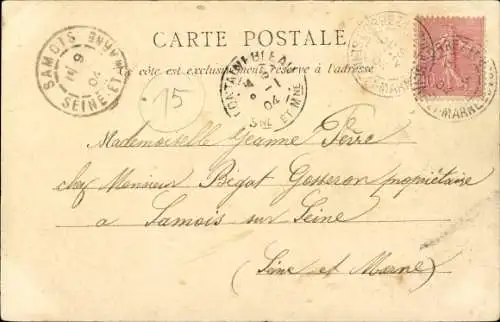 CARTE POSTALE
Ce côté est exclusivement réservé à l'adresse
SAMOIS
9
04
SEINE-ET-MARNE
FONTAINEBLEAU
04
SNE ET MNE
15
Mademoiselle Jeanne Ferre
chez Monsieur Bigat Gosseron propriétaire
à Samois sur Seine
(Seine et Marne)